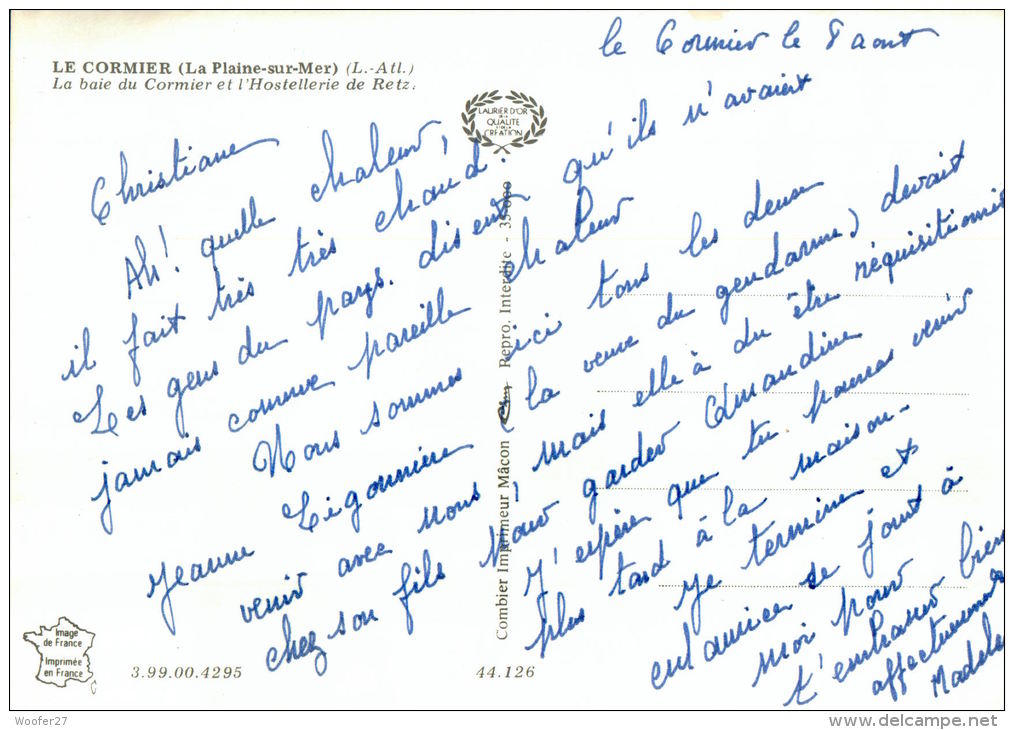 LE CORMIER (La Plaine-sur-Mer) (L.-Atl.)
La baie du Cormier et l'Hostellerie de Retz.
LAURIER D'OR
DE LA
QUALITÉ
ET DE LA
CRÉATION
le Cormier le 8 aout
Christiane
Ah! quelle chaleur,
il fait très très chaud.
Les gens du pays. disent qu'ils n'avaient
jamais comme pareille chaleur
Nous sommes ici tous les deux
Jeanne Légonnière (la veuve du gendarme) devait
venir avec nous mais elle à du être réquisitionné
chez son fils pour garder Amandine
J'espère que tu pourras venir
plus tard à la maison.
Je termine et
maurice se joint à
moi pour bien
t'embrasser
affectueusement
Madele
Combier Imprimeur Mâcon
Repro. Interdite - 35 000
Image
de France
Imprimée
en France
3.99.00.4295
44.126
Woofer27
www.delcampe.net